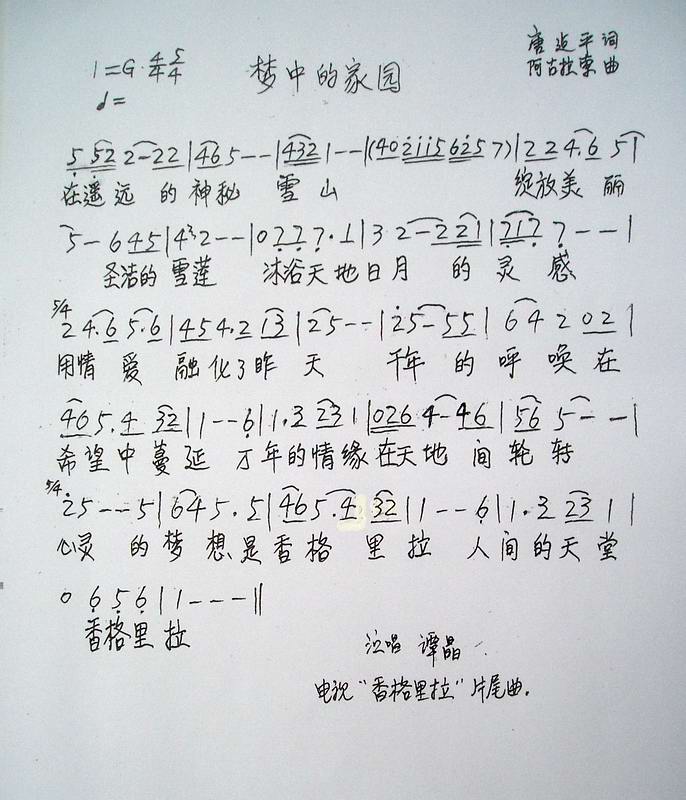 1=G 4/4 5/4 梦中的家园 唐 平 词
阿古拉泰 曲
♩=
5 52 2-22|46 5--|432 1--|(40 2115 6257)|22 4.6 5|
在遥远 的神秘 雪山 绽放美丽
5-645|4³2--|0777.1|32-221|717 7--|
圣洁的雪莲 沐浴天地日月 的灵感
5/4 24.65.6|454.213|25--|25-55|64202|
用情爱 融化了昨天 千年 的呼唤在
465.4 32|1--6|1.3231|026 4-46|56 5--|
希望中蔓延 万年的情缘在天地 间轮转
5/4 25--5|645.5|465.4 32|1--6|1.3 23 1|
心灵 的梦想是香格里拉 人间的天堂
0 656|1---||
香格里拉
演唱 谭晶
电视"香格里拉"片尾曲.